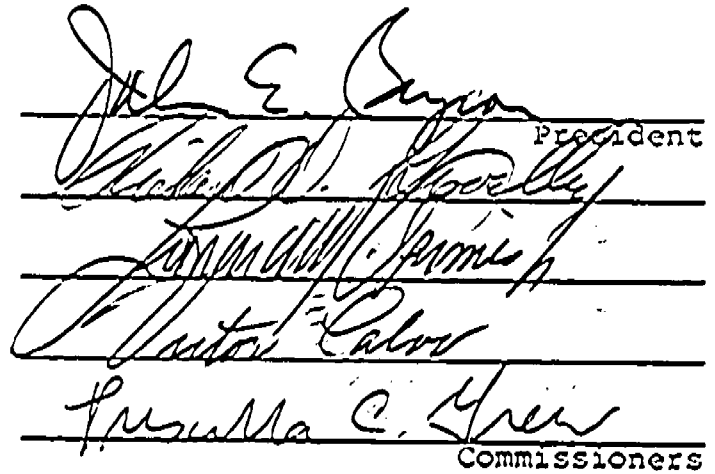 John E. Bryson
President
Richard D. Gravelle
Leonard M. Grimes, Jr.
Victor Calvo
Priscilla C. Grew
Commissioners